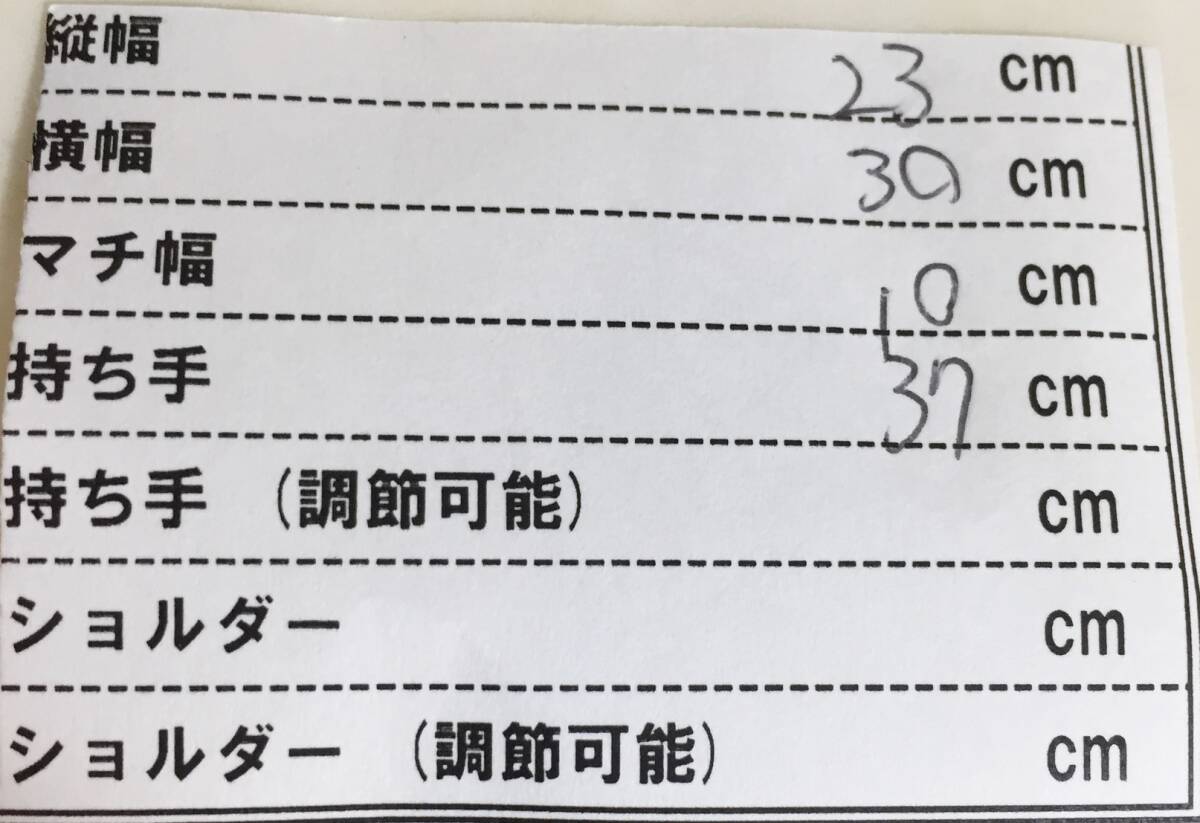 縦幅 23 cm
横幅 30 cm
マチ幅 10 cm
持ち手 37 cm
持ち手 (調節可能) cm
ショルダー cm
ショルダー (調節可能) cm